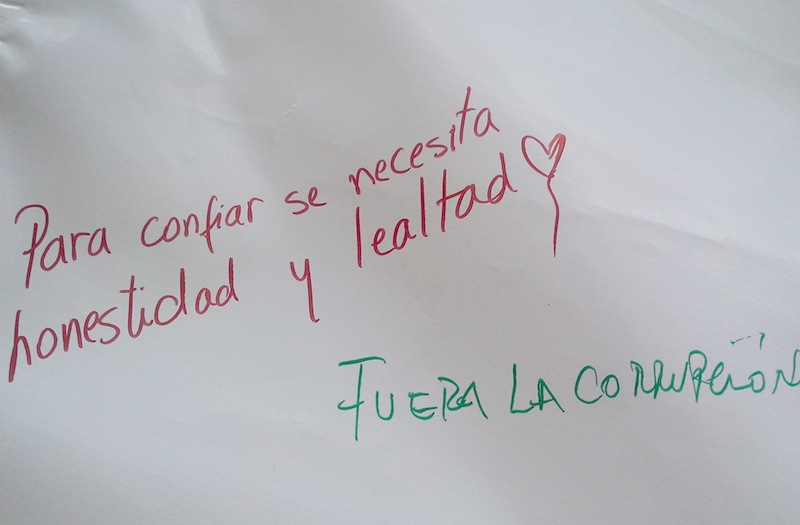 Para confiar se necesita
honestidad y lealtad
FUERA LA CORRUPCIÓN